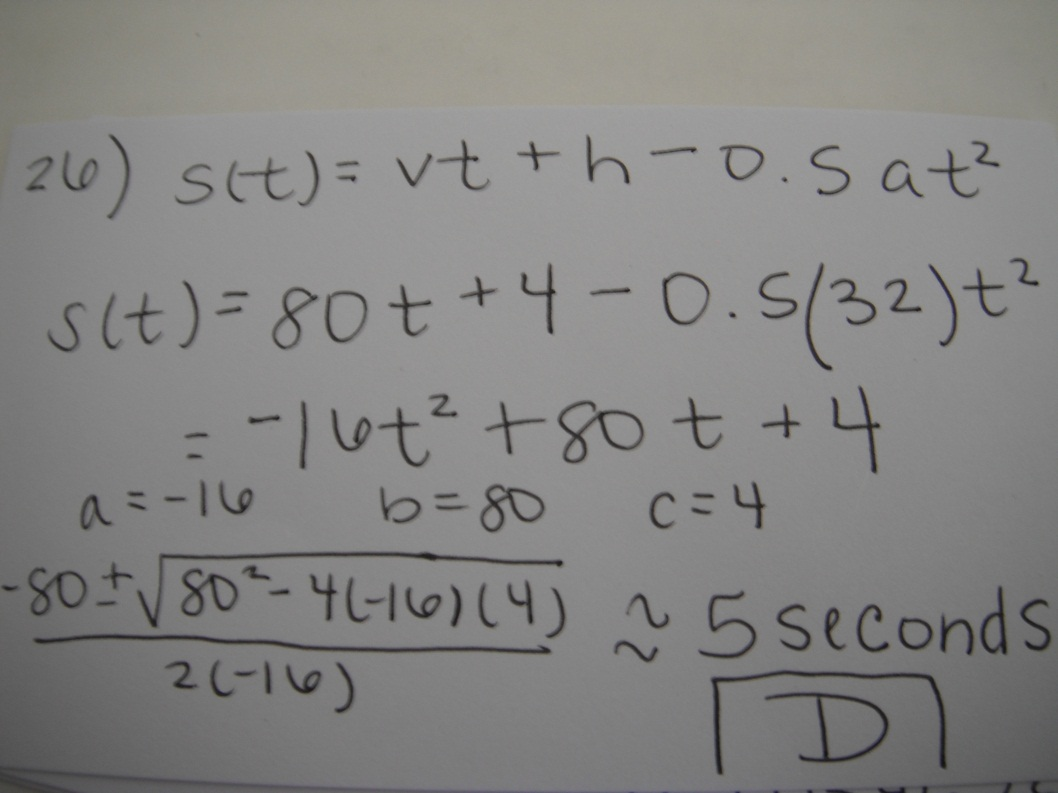 26) s(t) = vt + h - 0.5at²
s(t) = 80t + 4 - 0.5(32)t²
= -16t² + 80t + 4
a = -16 b = 80 c = 4
-80 ± √80² - 4(-16)(4) ≈ 5 seconds
2(-16)
D